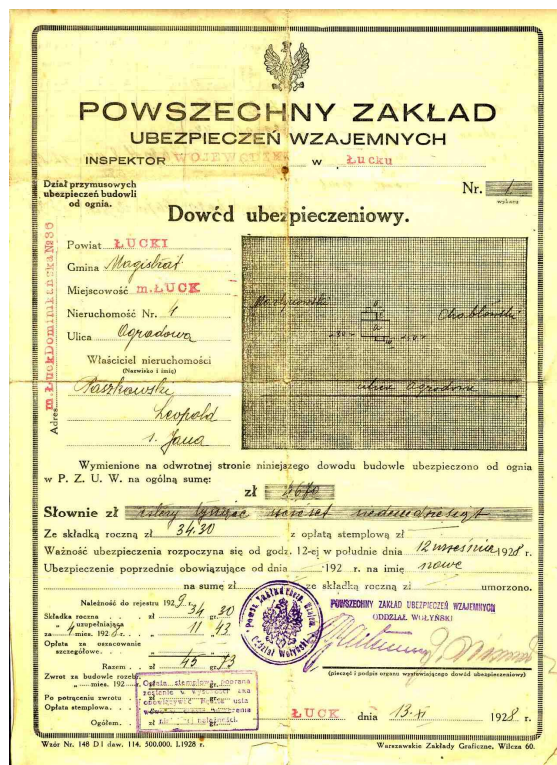 POWSZECHNY ZAKŁAD
UBEZPIECZEŃ WZAJEMNYCH
INSPEKTOR WOJEWÓDZKI w Łucku
Dział przymusowych
ubezpieczeń budowli
od ognia.
Nr. 1
wykazu
Dowód ubezpieczeniowy.
m. Łuck Dominikańska № 36
Adres
Powiat ŁUCKI
Gmina Magistrat
Miejscowość m. ŁUCK
Nieruchomość Nr. 4
Ulica Ogrodowa
Właściciel nieruchomości
(Nazwisko i imię)
Paszkowski
Leopold
s. Jana
ulica Ogrodowa
Wymienione na odwrotnej stronie niniejszego dowodu budowle ubezpieczono od ognia
w P. Z. U. W. na ogólną sumę:
zł 4670
Słownie zł cztery tysiące sześćset siedemdziesiąt
Ze składką roczną zł 34.30 z opłatą stemplową zł
Ważność ubezpieczenia rozpoczyna się od godz. 12-ej w południe dnia 12 września 1928 r.
Ubezpieczenie poprzednie obowiązujące od dnia 192 r. na imię nowe
na sumę zł ze składką roczną zł umorzono.
Należność do rejestru 1929.
Składka roczna zł 34 gr. 30
" uzupełniająca
za mies. 192 r. " 11 " 43
Opłata za oszacowanie
szczegółowe
Razem zł 45 gr. 73
Zwrot za budowle rozebr.
" mies. 192
Po potrąceniu zwrotu
Opłata stemplowa
Ogółem. zł
Opłata stemplowa, pobrana
należności.
Powsz. Zakład Ubezp. Wzajem.
Oddział Wołyński
POWSZECHNY ZAKŁAD UBEZPIECZEŃ WZAJEMNYCH
ODDZIAŁ WOŁYŃSKI
(pieczęć i podpis organu wystawiającego dowód ubezpieczeniowy)
ŁUCK dnia 13-XI 1928 r.
Wzór Nr. 148 D I daw. 114. 500.000. I.1928 r.
Warszawskie Zakłady Graficzne, Wilcza 60.